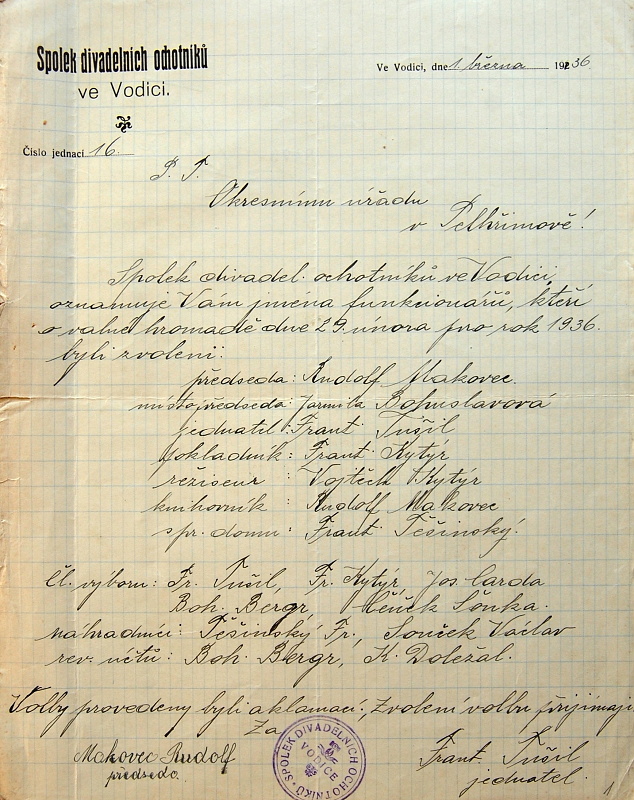 Spolek divadelních ochotníků
ve Vodici.
Ve Vodici, dne 1. března 1936
Číslo jednací 16.
P. T.
Okresnímu úřadu
v Pelhřimově!
Spolek divadel. ochotníků ve Vodici,
oznamuje Vám jmena funkcionářů, kteří
o valné hromadě dne 29. února pro rok 1936.
byli zvoleni:
předseda: Rudolf Makovec.
místopředseda: Jarmila Bohuslavová
jednatel: Frant. Tušil
pokladník: Frant. Kytýr
režiseur: Vojtěch Kytýr
knihovník: Rudolf Makovec
spr. domu: Frant. Těšinský.
Čl. výboru: Fr. Tušil, Fr. Kytýr, Jos. Carda
Boh. Bergr, Čeněk Šonka.
náhradníci: Těšinský Fr., Souček Václav
rev. účtů: Boh. Bergr, K. Doležal.
Volby provedeny byli aklamací, Zvolení volbu přijímají.
Za
SPOLEK DIVADELNÍCH OCHOTNÍKŮ
VODICE
Makovec Rudolf
předseda.
Frant. Tušil
jednatel.
1